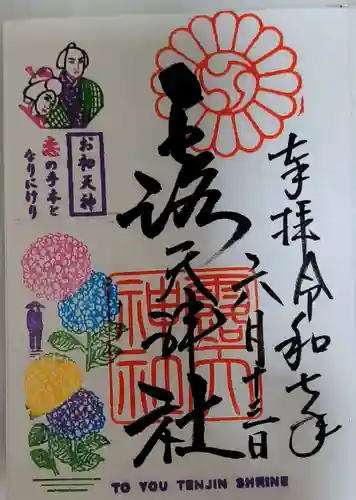 奉拝 令和七年
六月十三日
露天神社
お初天神
恋の手本と
なりにけり
TO YOU TENJIN SHRINE